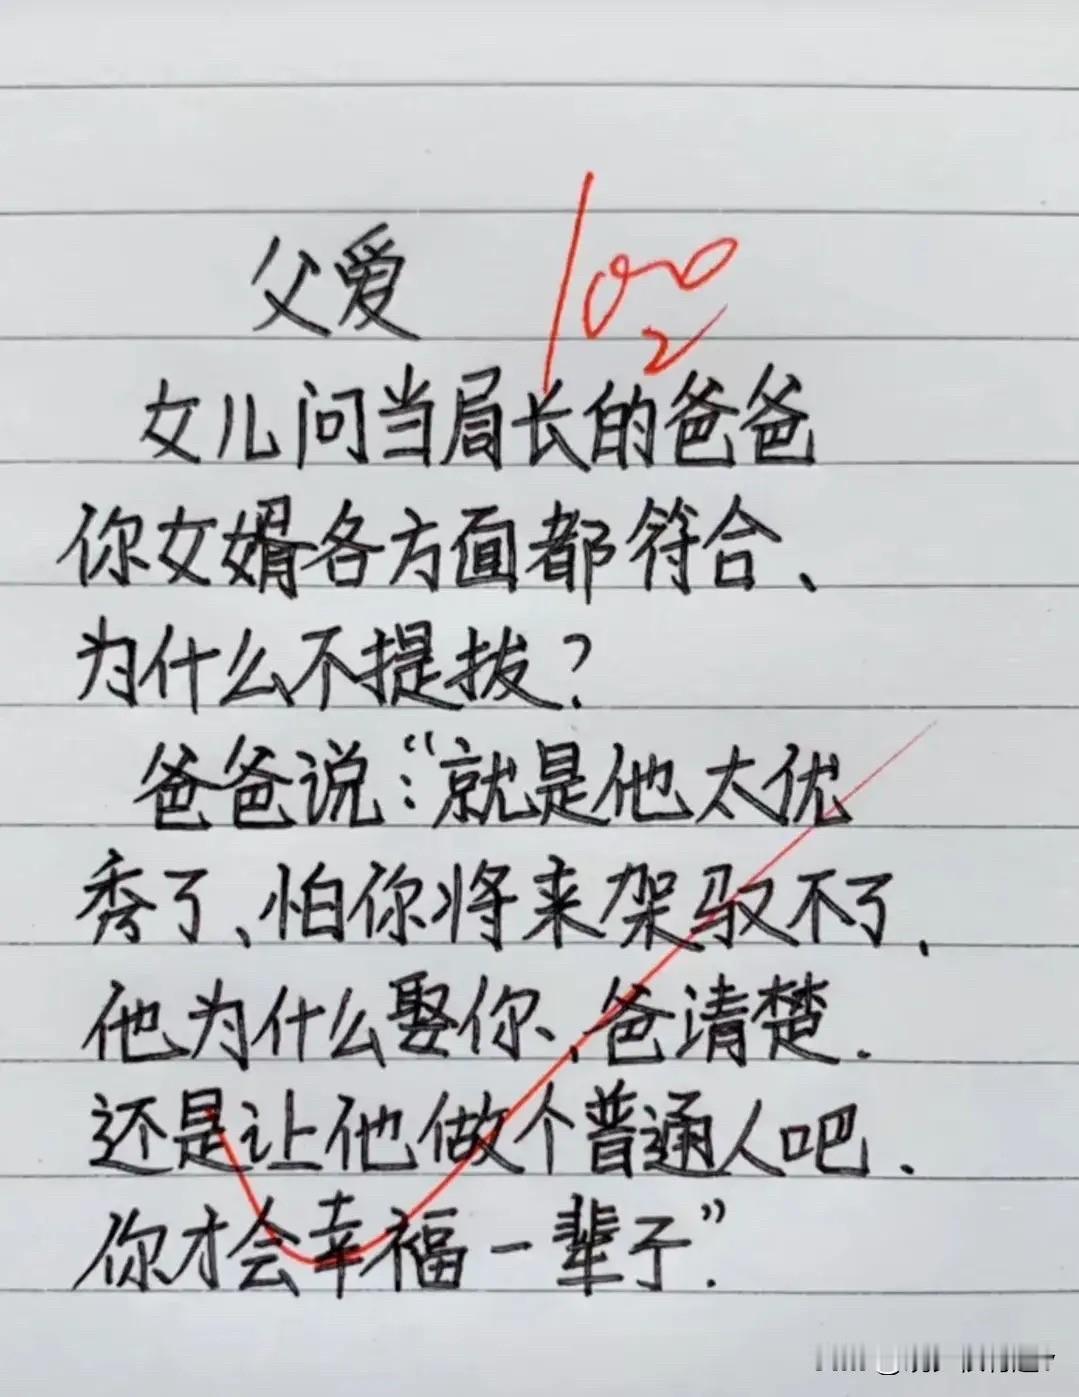 父爱
100
2
女儿问当局长的爸爸
你女婿各方面都符合、
为什么不提拔?
爸爸说:“就是他太优
秀了、怕你将来架驭不了、
他为什么娶你、爸清楚.
还是让他做个普通人吧、
你才会幸福一辈子”.